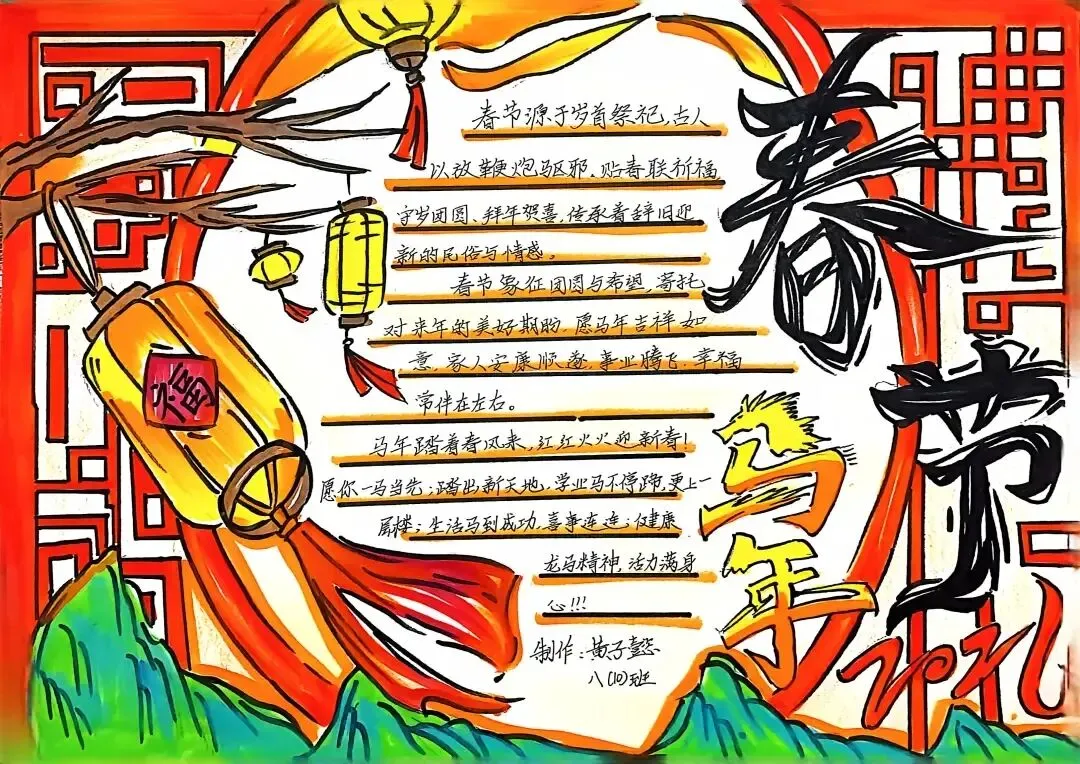 春节
马年
2026
福
春节源于岁首祭祀,古人
以放鞭炮驱邪、贴春联祈福
守岁团圆、拜年贺喜,传承着辞旧迎
新的民俗与情感。
春节象征团圆与希望,寄托
对来年的美好期盼,愿马年吉祥如
意,家人安康顺遂,事业腾飞,幸福
常伴在左右。
马年踏着春风来,红红火火迎新春!
愿你一马当先;踏出新天地,学业马不停蹄,更上一
层楼;生活马到成功,喜事连连;健康
龙马精神,活力满身
心!!!
制作:黄子懿
八(10)班